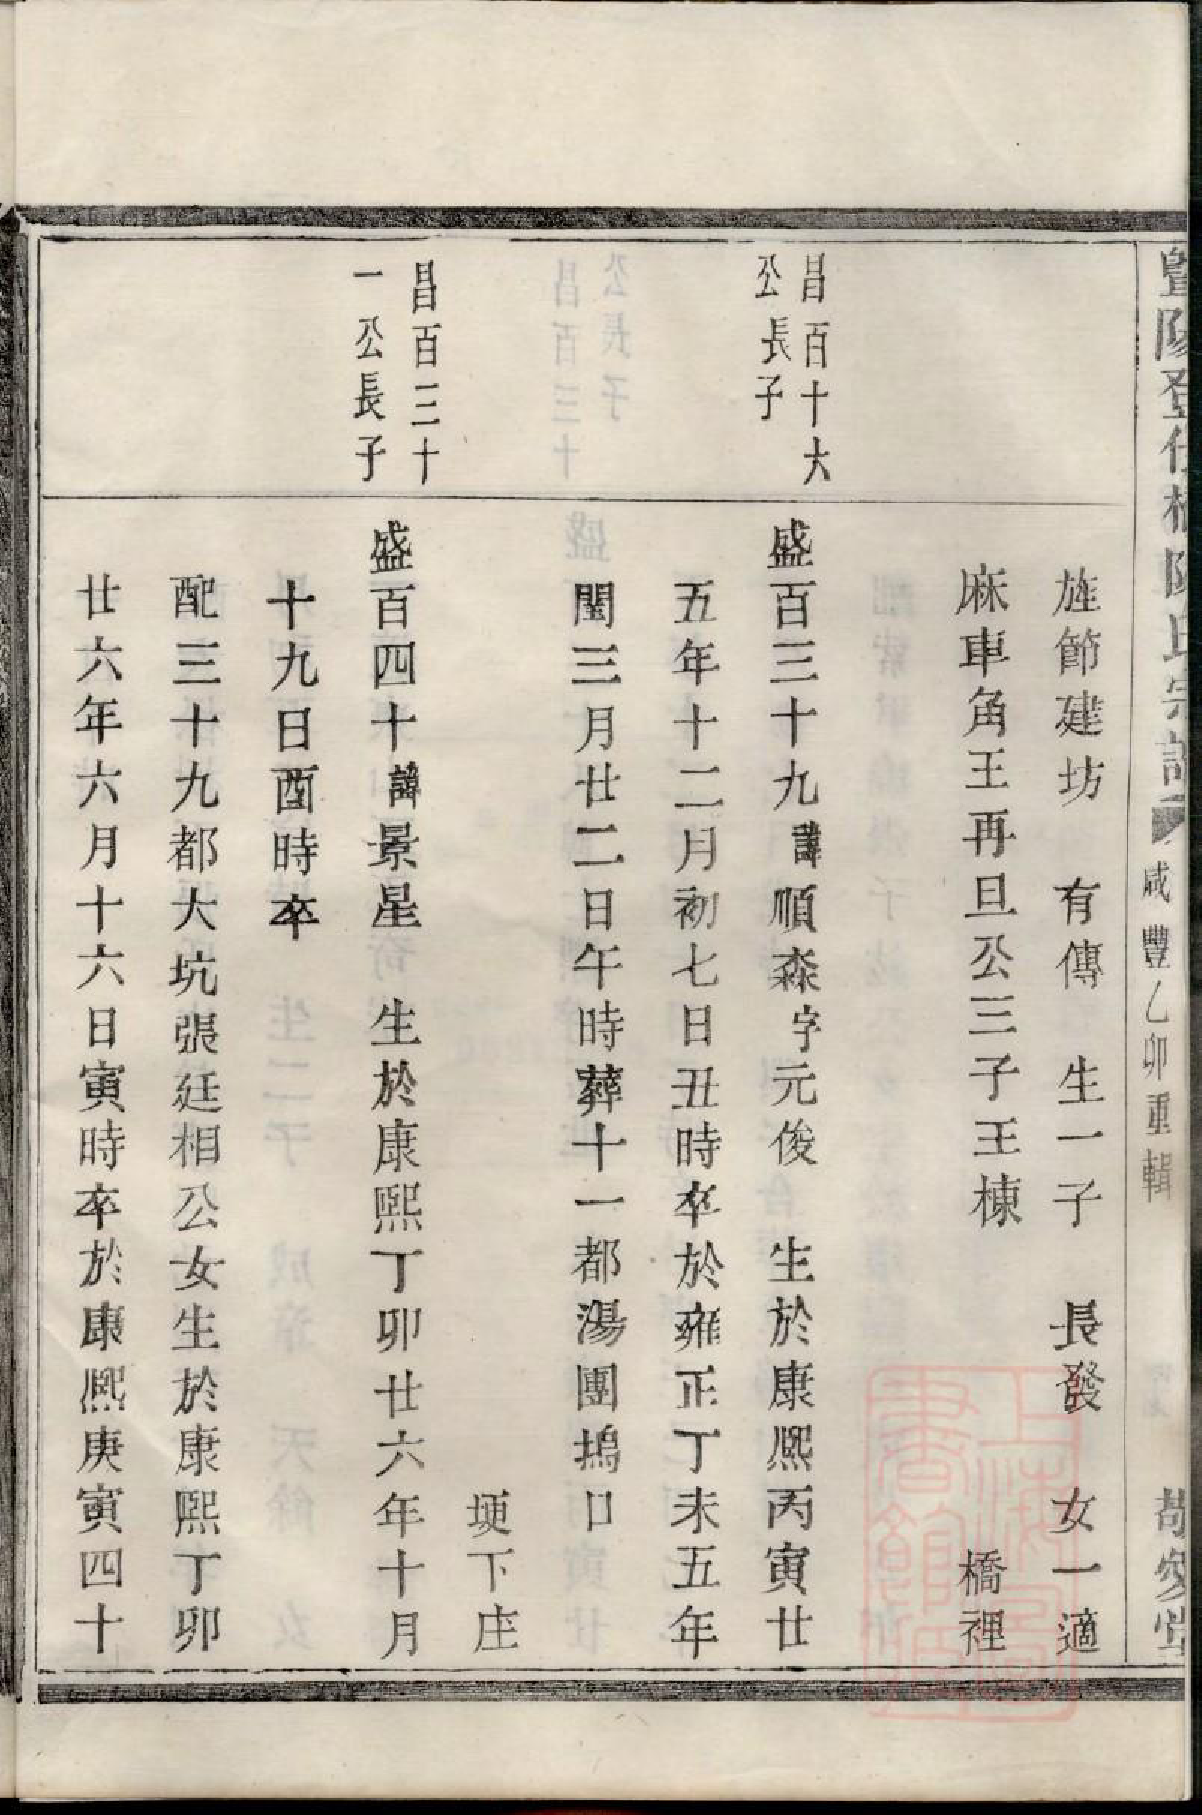 暨陽登仕橋陳氏宗譜 咸豐乙卯重輯 敬安堂
旌節建坊 有傳 生一子 長發 女一適
麻車角王再旦公三子王棟 橋裡
昌百十六
公長子
盛百三十九諱順森字元俊 生於康熙丙寅廿
五年十二月初七日丑時卒於雍正丁未五年
閏三月廿二日午時葬十一都湯團塢口
埂下庄
昌百二十
一公長子
盛百四十諱景星 生於康熙丁卯廿六年十月
十九日酉時卒
配三十九都大坑張廷相公女生於康熙丁卯
廿六年六月十六日寅時卒於康熙庚寅四十